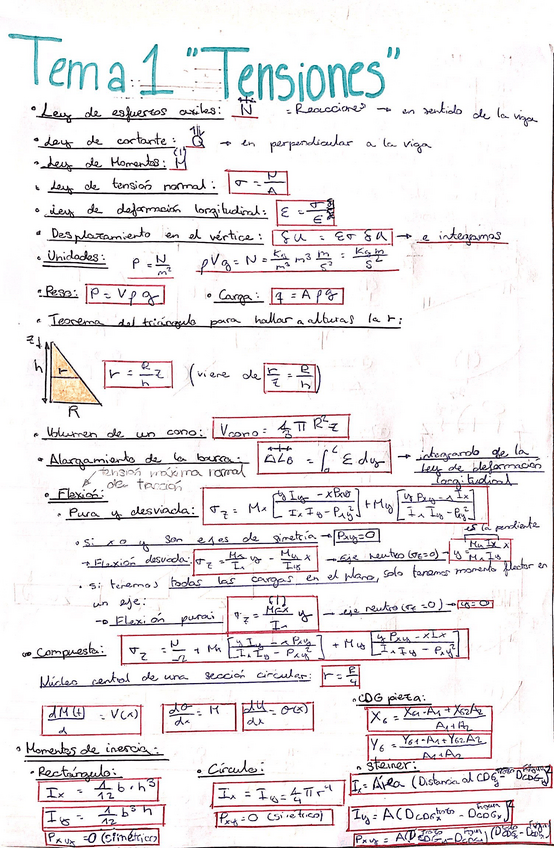 Tema 1 "Tensiones"
• Ley de esfuerzos axiles: N = Reacciones → en sentido de la viga
• Ley de cortante: Q → en perpendicular a la viga
• Ley de Momentos: M
• Ley de tensión normal: σ = N/A
• Ley de deformación longitudinal: ε = σ/E
• Desplazamiento en el vértice: → e integramos
• Unidades: P = N/m² ρVg = N = Kg/m³ m³ m/s² = Kg m/s²
• Peso: P = V ρ g • Carga: q = A ρ g
• Teorema del triángulo para hallar a alturas la r:
z h r R
r = R/h z (viene de r/z = R/h)
• Volumen de un cono: Vcono = π R² z
• Alargamiento de la barra: ΔLo = ∫₀ᴸ ε dy → integrando de la ley de deformación longitudinal
tensión máxima normal de tracción
• Flexión:
• Pura y desviada: σz = Mx [(y Iy - x Pxy)/(Ix Iy - Pxy²)] + My [(y Pxy - x Ix)/(Ix Iy - Pxy²)]
es la pendiente
• si x o y son ejes de simetría → Pxy = 0
→ Flexión desviada: σz = Mx/Ix y - My/Iy x → eje neutro (σz=0) → y = x
• si tenemos todas las cargas en el plano, solo tenemos momento flector en
un eje:
→ Flexión pura: y → eje neutro (σz = 0) → y = 0
Compuesta: σz = N/Ω + Mx [(y Iy - x Pxy)/(Ix Iy - Pxy²)] + My [(y Pxy - x Ix)/(Ix Iy - Pxy²)]
Núcleo central de una sección circular: r = R/4
= V(x) = M = θ(x)
• CDG pieza:
XG = (XG1·A1 + XG2 A2)/(A1+A2)
YG = (YG1·A1 + YG2 A2)/(A1+A2)
• Momentos de inercia:
• Rectángulo:
Ix = 1/12 b · h³
Iy = 1/12 b³ h
Pxy = 0 (simétrico)
• Círculo:
Ix = Iy = π r⁴
Pxy = 0 (simetrico)
• Steiner:
Ix = Área (Distancia al CDG
Iy = A (DCDGx - DCDGx)²
Pxy = A(